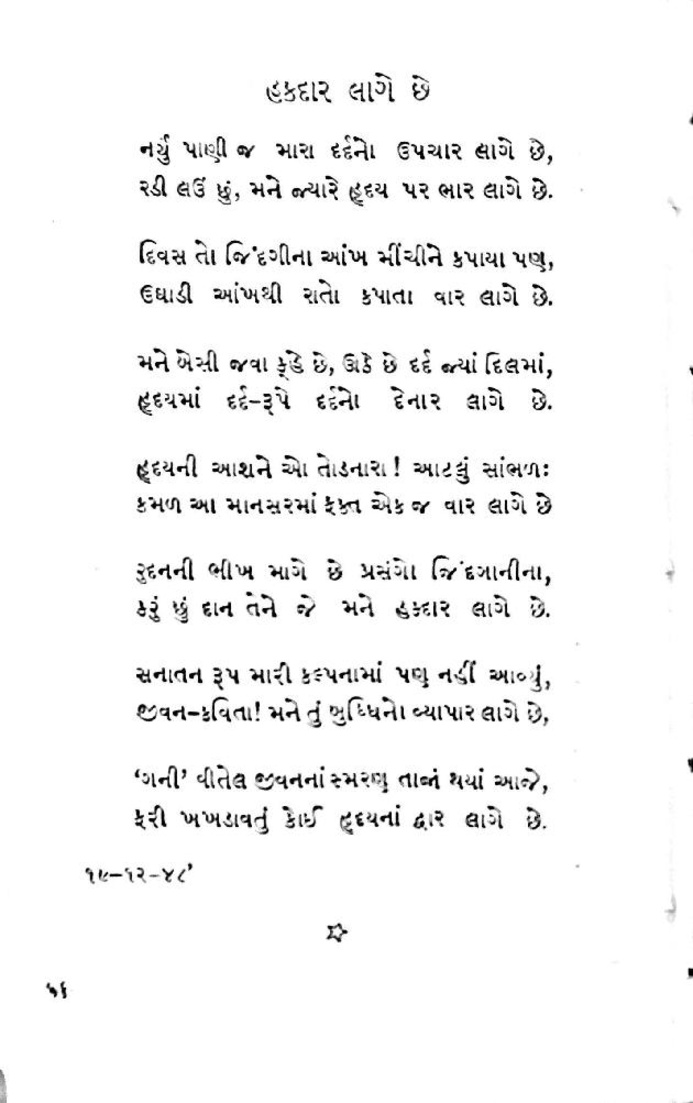 હકદાર લાગે છે
નર્યું પાણી જ મારા દર્દનો ઉપચાર લાગે છે,
રડી લઉં છું, મને જ્યારે હૃદય પર ભાર લાગે છે.
દિવસ તો જિંદગીના આંખ મીંચીને કપાયા પણ,
ઉઘાડી આંખથી રાતો કપાતા વાર લાગે છે.
મને બેસી જવા કૂહે છે, ઊઠે છે દર્દ જ્યાં દિલમાં,
હૃદયમાં દર્દ-રૂપે દર્દનો દેનાર લાગે છે.
હૃદયની આશને ઓ તોડનારા! આટલું સાંભળઃ
કમળ આ માનસરમાં ફક્ત એક જ વાર લાગે છે
રુદનની ભીખ માગે છે પ્રસંગો જિંદગાનીના,
કરું છું દાન તેને જે મને હક્દાર લાગે છે.
સનાતન રૂપ મારી કલ્પનામાં પણ નહીં આવ્યું,
જીવન-કવિતા! મને તું બુધ્ધિનો વ્યાપાર લાગે છે,
‘ગની’ વીતેલ જીવનનાં સ્મરણ તાજાં થયાં આજે,
ફરી ખખડાવતું કોઈ હૃદયનાં દ્વાર લાગે છે.
૧૯-૧૨-૪૮’
૫૬